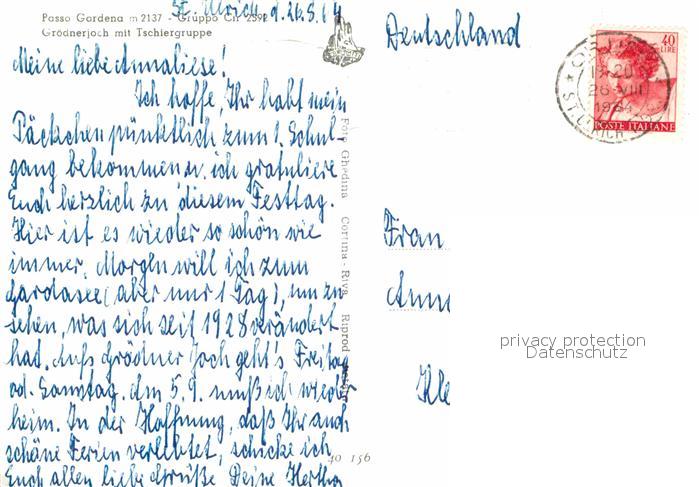 St. Ulrich, d. 26.8.64
Passo Gardena m 2137 - Gruppo Cir 2592
Grödnerjoch mit Tschiergruppe
Meine liebe Annaliese!
Ich hoffe, Ihr habt mein
Päckchen pünktlich zum 1. Schul-
gang bekommen u. ich gratuliere
Euch herzlich zu diesem Festtag.
Hier ist es wieder so schön wie
immer. Morgen will ich zum
Gardasee (aber nur 1 Tag), um zu
sehen, was sich seit 1928 verändert
hat. Aufs Grödner Joch geht's Freitag
od. Samstag. Am 5.9. muß ich wieder
heim. In der Hoffnung, daß Ihr auch
schöne Ferien verlebtet, schicke ich
Euch allen liebe Grüße Deine Hertha
Foto Ghedina Cortina - Riva Riprod.
40 156
Deutschland
40
LIRE
18-20
26 VIII
1964
ST. ULRICH
POSTE ITALIANE
Frau
Anna
Kle
privacy protection
Datenschutz